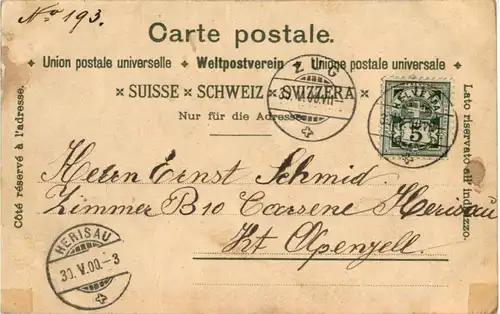 No 193.
Carte postale.
Union postale universelle Weltpostverein Unione postale universale
SUISSE SCHWEIZ SVIZZERA
Nur für die Adresse.
Côté réservé à l'adresse.
Lato riservato all' indirizzo.
ZUG
30.V.00.VII
5
Herrn Ernst Schmid.
Zimmer B 10 Carsene Herisau
Kt Apenzell.
HERISAU
30.V.00.-3